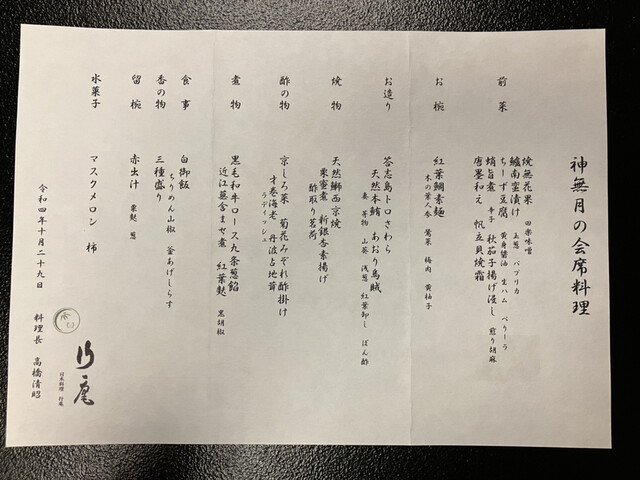 神無月の会席料理
前菜
焼無花果 田楽味噌
鱸南蛮漬け 玉葱 パプリカ
ちーず豆腐 黄身醤油 生ハム
蛸旨煮 辛子 秋茄子揚げ浸し 煎り胡麻
唐墨和え 帆立貝焼霜
お椀
紅葉鯛素麺
木の葉人参 鶯菜 梅肉 黄柚子
お造り
答志島トロさわら
天然本鮪 あおり烏賊
妻 芽物 山葵 浅葱 紅葉卸し ぽん酢
焼物
天然鰤西京焼
栗蜜煮 新銀杏素揚げ
酢取り茗荷
酢の物
京しろ菜 菊花みぞれ酢掛け
才巻海老 丹波占地茸
ラディッシュ
煮物
黒毛和牛ロース九条葱餡
近江蕪含ませ煮 紅葉麩 黒胡椒
食事
白御飯
ちりめん山椒 釜あげしらす
香の物
三種盛り
留椀
赤出汁 粟麩 葱
水菓子
マスクメロン 柿
令和四年十月二十九日
日本料理 行庵
料理長 高橋清昭